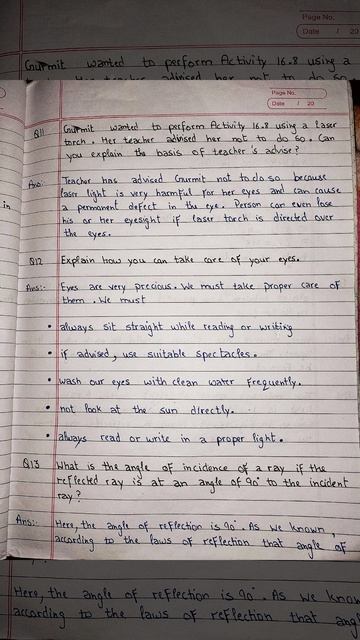 Page No.
Date / 20
Gurmit wanted to perform Activity 16.8 using a
Her teacher advised her not to do so
Page No.
Date / 20
Q11 Gurmit wanted to perform Activity 16.8 using a laser
torch. Her teacher advised her not to do so. Can
you explain the basis of teacher's advise?
Ans:- Teacher has advised Gurmit not to do so because
laser light is very harmful for her eyes and can cause
a permanent defect in the eye. Person can even lose
his or her eyesight if laser torch is directed over
the eyes.
in
Q12 Explain how you can take care of your eyes.
Ans:- Eyes are very precious. We must take proper care of
them. We must
• always sit straight while reading or writing
• if advised, use suitable spectacles.
• wash our eyes with clean water frequently.
• not look at the sun directly.
• always read or write in a proper light.
Q13 What is the angle of incidence of a ray if the
reflected ray is at an angle of 90° to the incident
ray?
Ans:- Here, the angle of reflection is 90°. As we known,
according to the laws of reflection that angle of
Here, the angle of reflection is 90°. As we know
according to the laws of reflection that ang